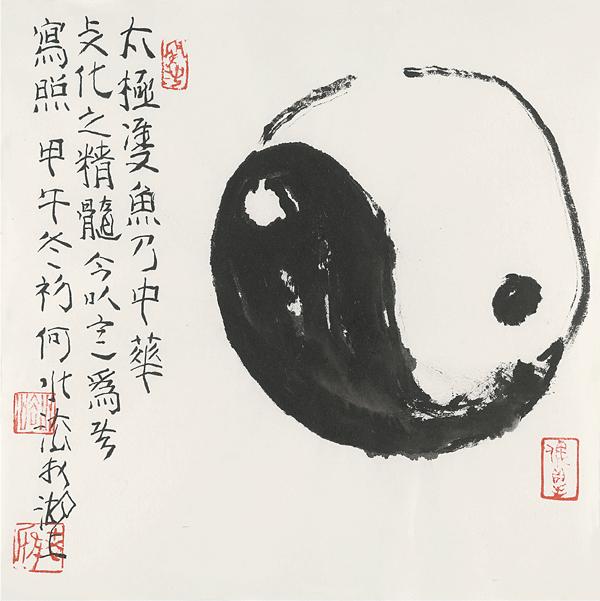 太極雙魚乃中華
文化之精髓今以它爲
寫照甲午冬初何水法於湖上